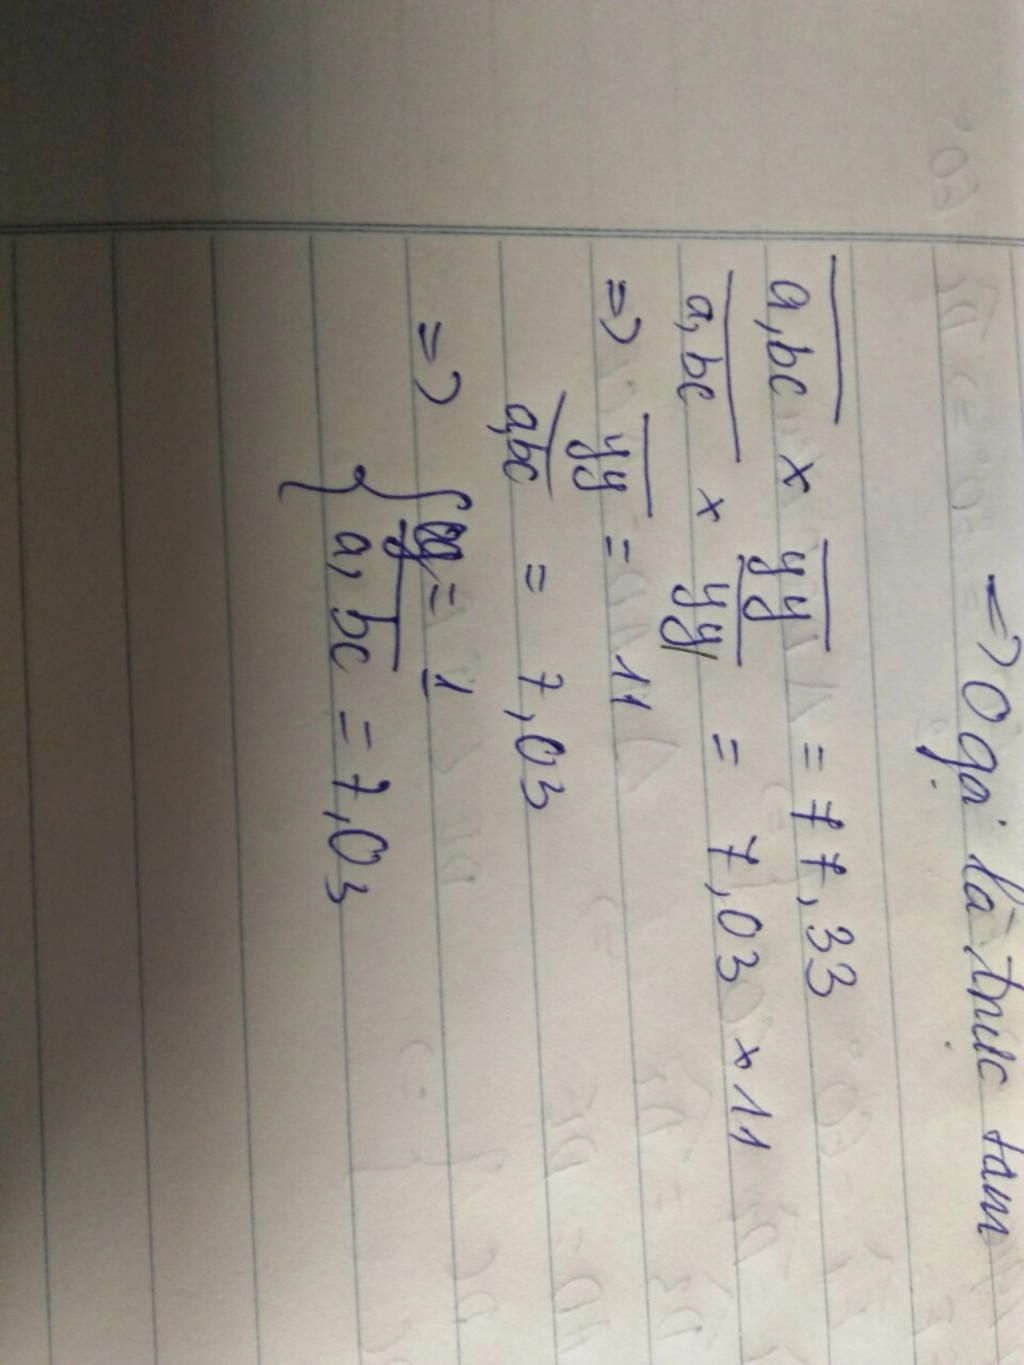 => O gọi là trực tâm
a,bc x yy = 77,33
a,bc x yy = 7,03 x 11
=> yy = 11
a,bc = 7,03
=> { y = 1
a,bc = 7,03